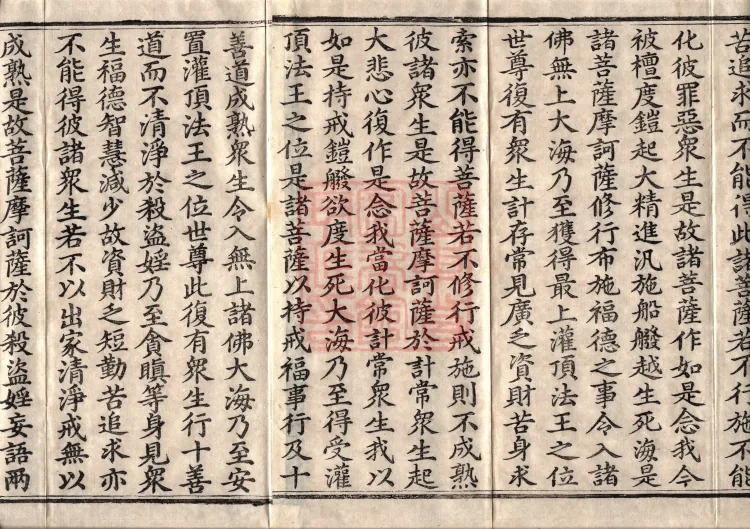 苦追求而不能得此諸菩薩若不行施不能
化彼罪惡衆生是故諸菩薩作如是念我今
被檀度鎧起大精進汎施船艘越生死海是
諸菩薩摩訶薩修行布施福德之事令入諸
佛無上大海乃至獲得最上灌頂法王之位
世尊復有衆生計存常見廣乏資財苦身求
索亦不能得菩薩若不修行戒施則不成熟
彼諸衆生是故菩薩摩訶薩於計常衆生起
大悲心復作是念我當化彼計常衆生我以
如是持戒鎧艘欲度生死大海乃至得受灌
頂法王之位是諸菩薩以持戒福事行及十
善道成熟衆生令入無上諸佛大海乃至安
置灌頂法王之位世尊此復有衆生行十善
道而不清淨於殺盜婬乃至貪瞋等身見衆
生福德智慧減少故資財乏短勤苦追求亦
不能得彼諸衆生若不以出家清淨戒無以
成熟是故菩薩摩訶薩於彼殺盜婬妄語兩